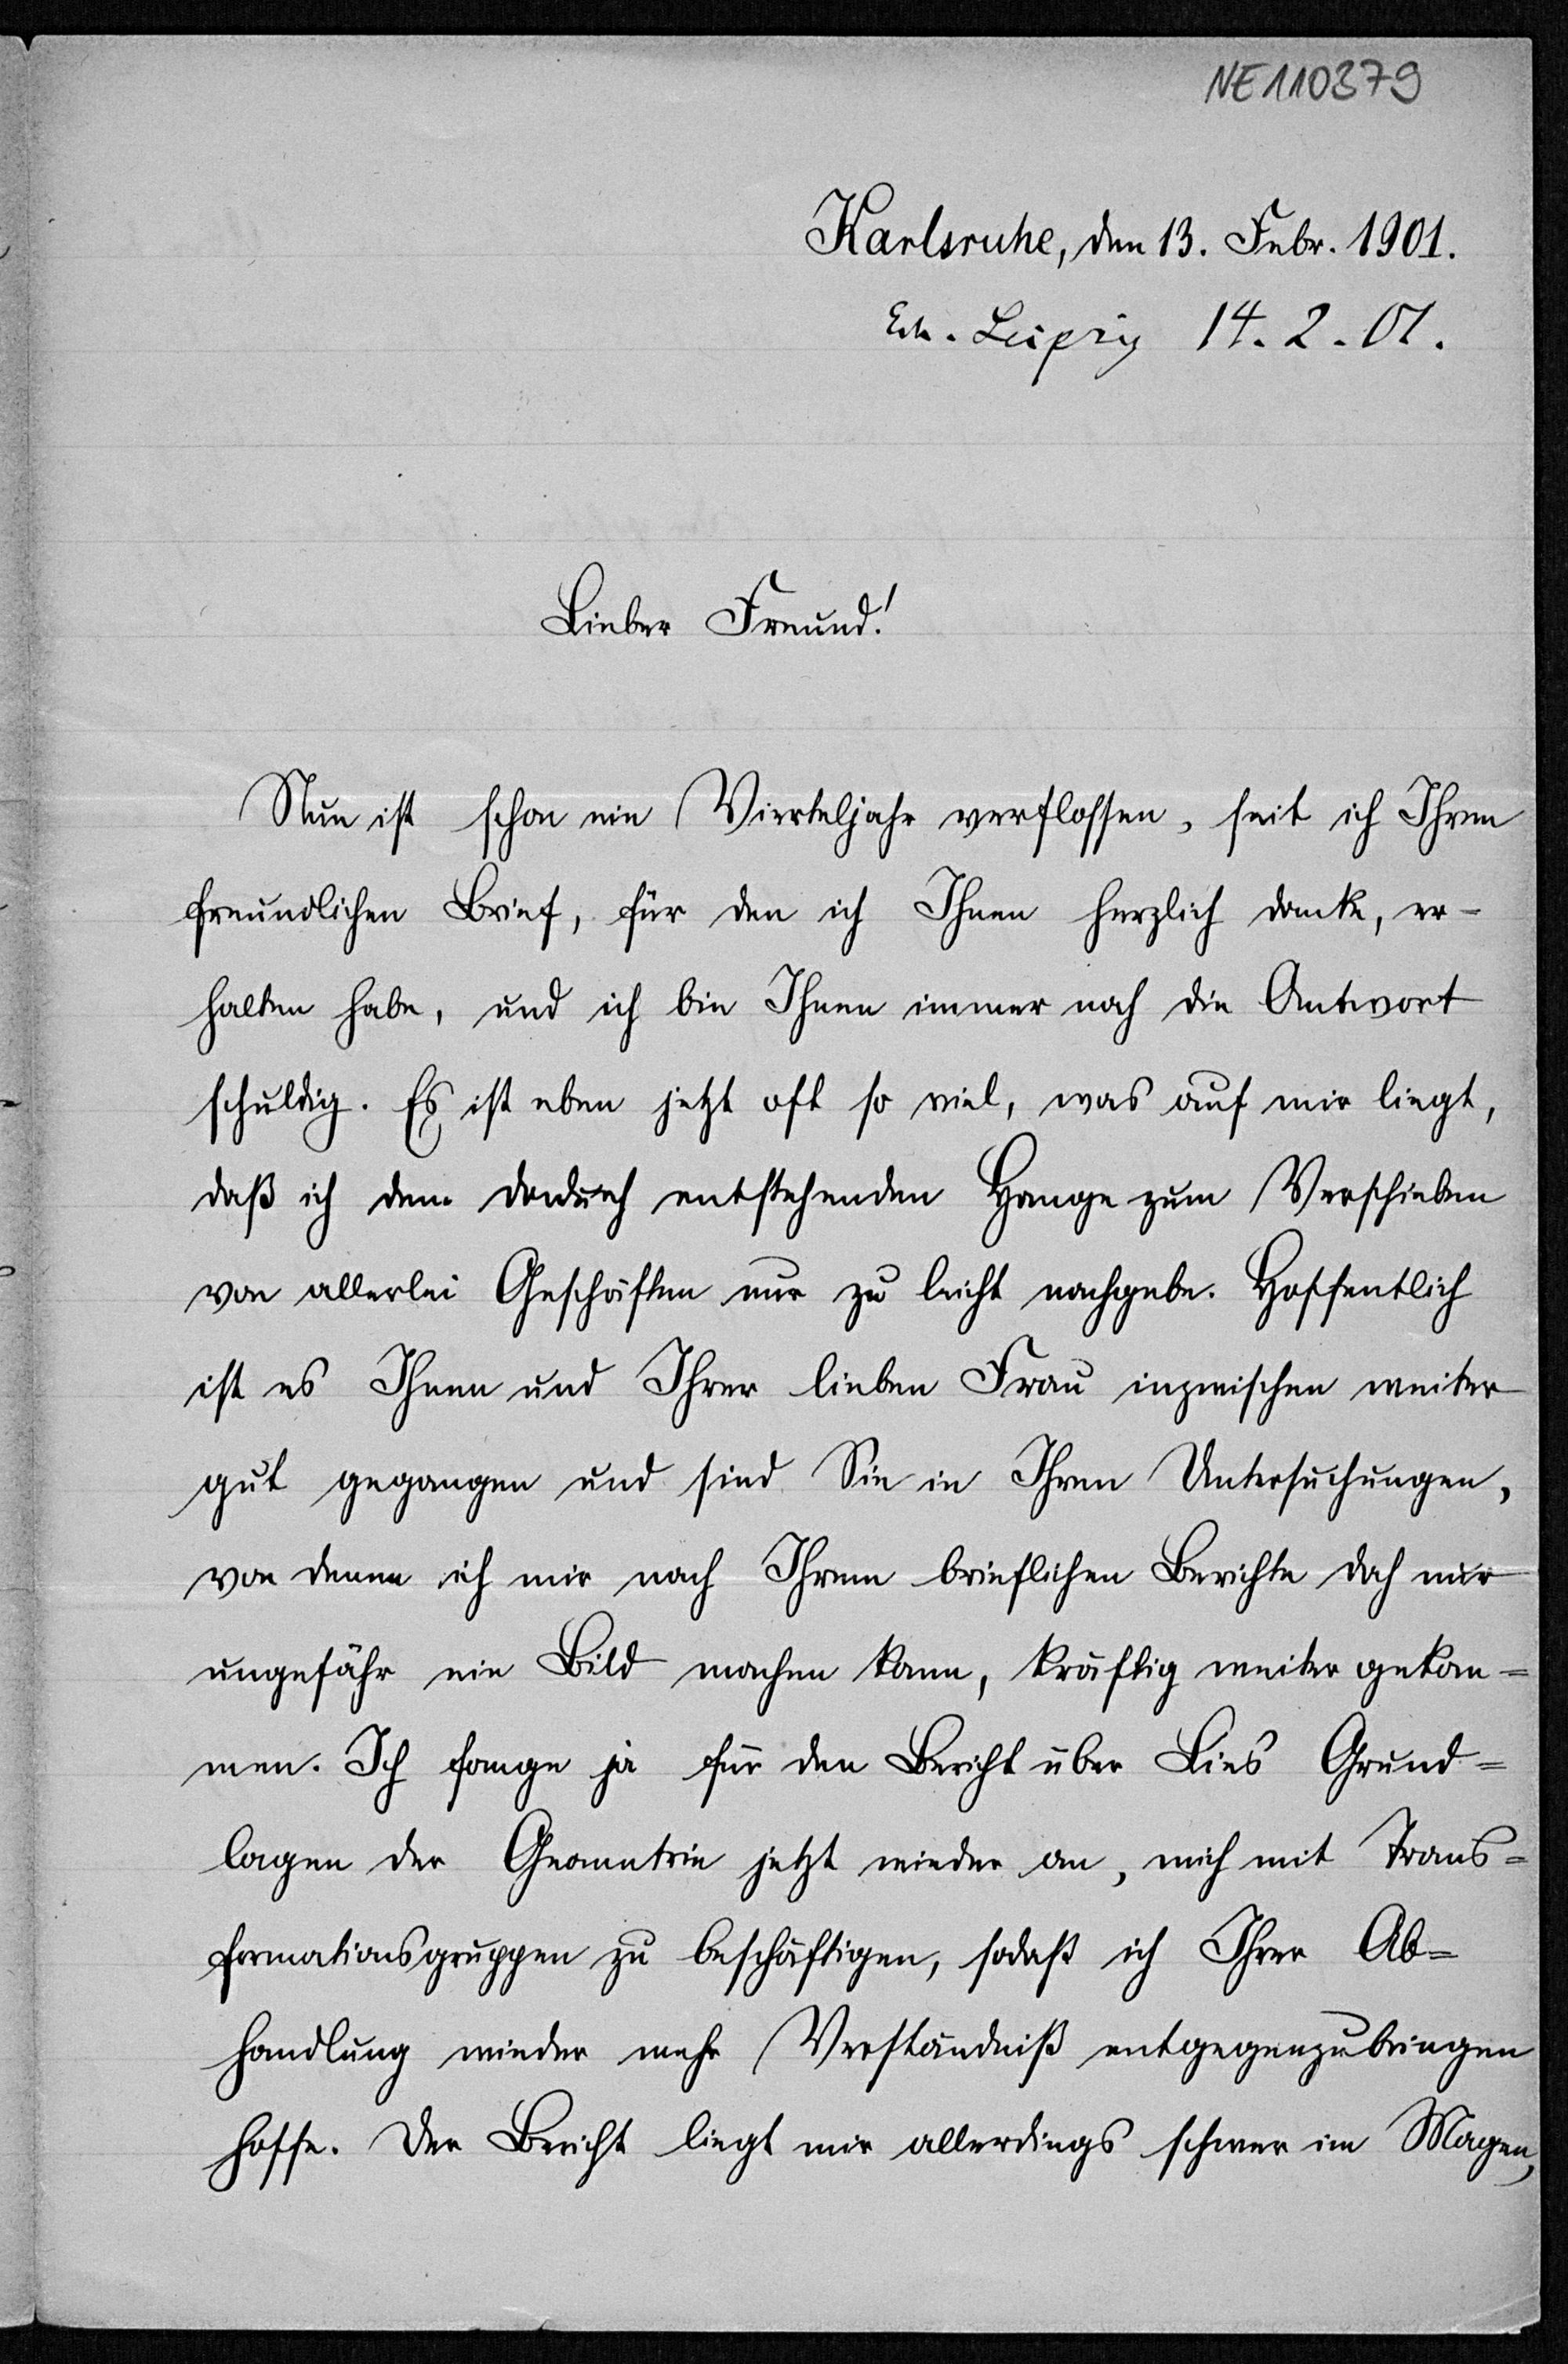 NE110379
Karlsruhe, den 13. Febr. 1901.
Leipzig 14.2.01.
Lieber Freund!
Nun ist schon ein Vierteljahr verflossen, seit ich Ihren
freundlichen Brief, für den ich Ihnen herzlich danke, er-
halten habe, und ich bin Ihnen immer noch die Antwort
schuldig. Es ist eben jetzt oft so viel, was auf mir liegt,
daß ich dem dadurch entstehenden Hange zum Verschieben
von allerlei Geschäften nur zu leicht nachgebe. Hoffentlich
ist es Ihnen und Ihrer lieben Frau inzwischen weiter
gut gegangen und sind Sie in Ihren Untersuchungen,
von denen ich mir nach Ihrem brieflichen Berichte doch nur
ungefähr ein Bild machen kann, kräftig weiter gekom=
men. Ich fange ja für den Bericht über Lies Grund=
lagen der Geometrie jetzt wieder an, mich mit Trans=
formationsgruppen zu beschäftigen, sodaß ich Ihrer Ab=
handlung wieder mehr Verständniß entgegenzubringen
hoffe. Der Bericht liegt mir allerdings schwer im Magen,